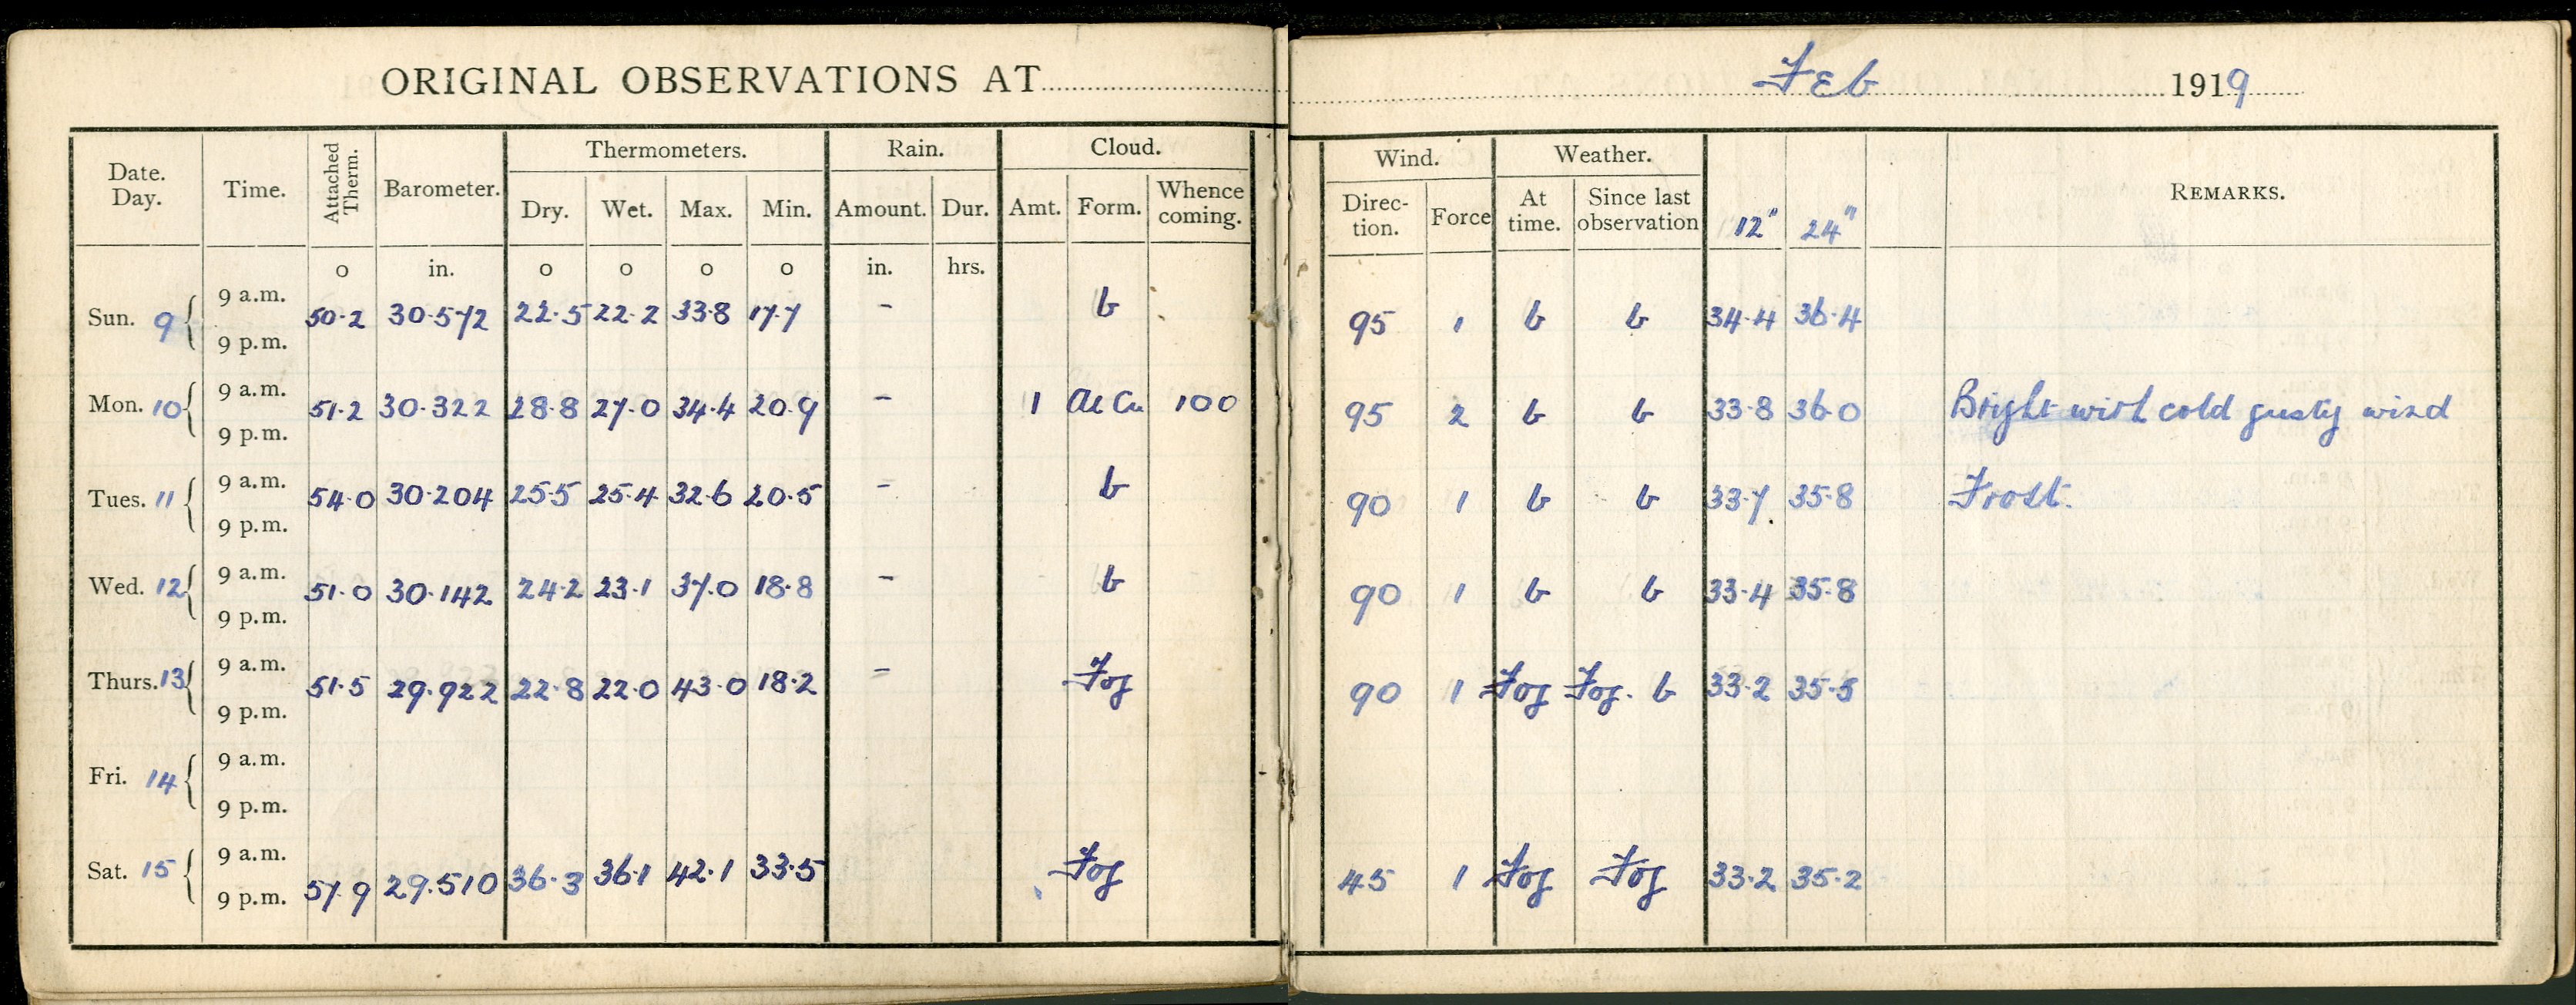 ORIGINAL OBSERVATIONS AT Feb 1919
Date. Day. Time. Attached Therm. Barometer. Thermometers. Rain. Cloud. Wind. Weather. 12" 24" REMARKS.
Dry. Wet. Max. Min. Amount. Dur. Amt. Form. Whence coming. Direc-tion. Force At time. Since last observation
o in. o o o o in. hrs.
9 a.m.
Sun. 9 50.2 30.572 22.5 22.2 33.8 17.7 - b 95 1 b b 34.4 36.4
9 p.m.
9 a.m.
Mon. 10 51.2 30.322 28.8 27.0 34.4 20.9 - 1 Al Cu 100 95 2 b b 33.8 36.0 Bright with cold gusty wind
9 p.m.
9 a.m.
Tues. 11 54.0 30.204 25.5 25.4 32.6 20.5 - b 90 1 b b 33.7 35.8 Frost.
9 p.m.
9 a.m.
Wed. 12 51.0 30.142 24.2 23.1 37.0 18.8 - b 90 1 b b 33.4 35.8
9 p.m.
9 a.m.
Thurs. 13 51.5 29.922 22.8 22.0 43.0 18.2 - Fog 90 1 Fog Fog. b 33.2 35.5
9 p.m.
9 a.m.
Fri. 14
9 p.m.
9 a.m.
Sat. 15 57.9 29.510 36.3 36.1 42.1 33.5 Fog 45 1 Fog Fog 33.2 35.2
9 p.m.